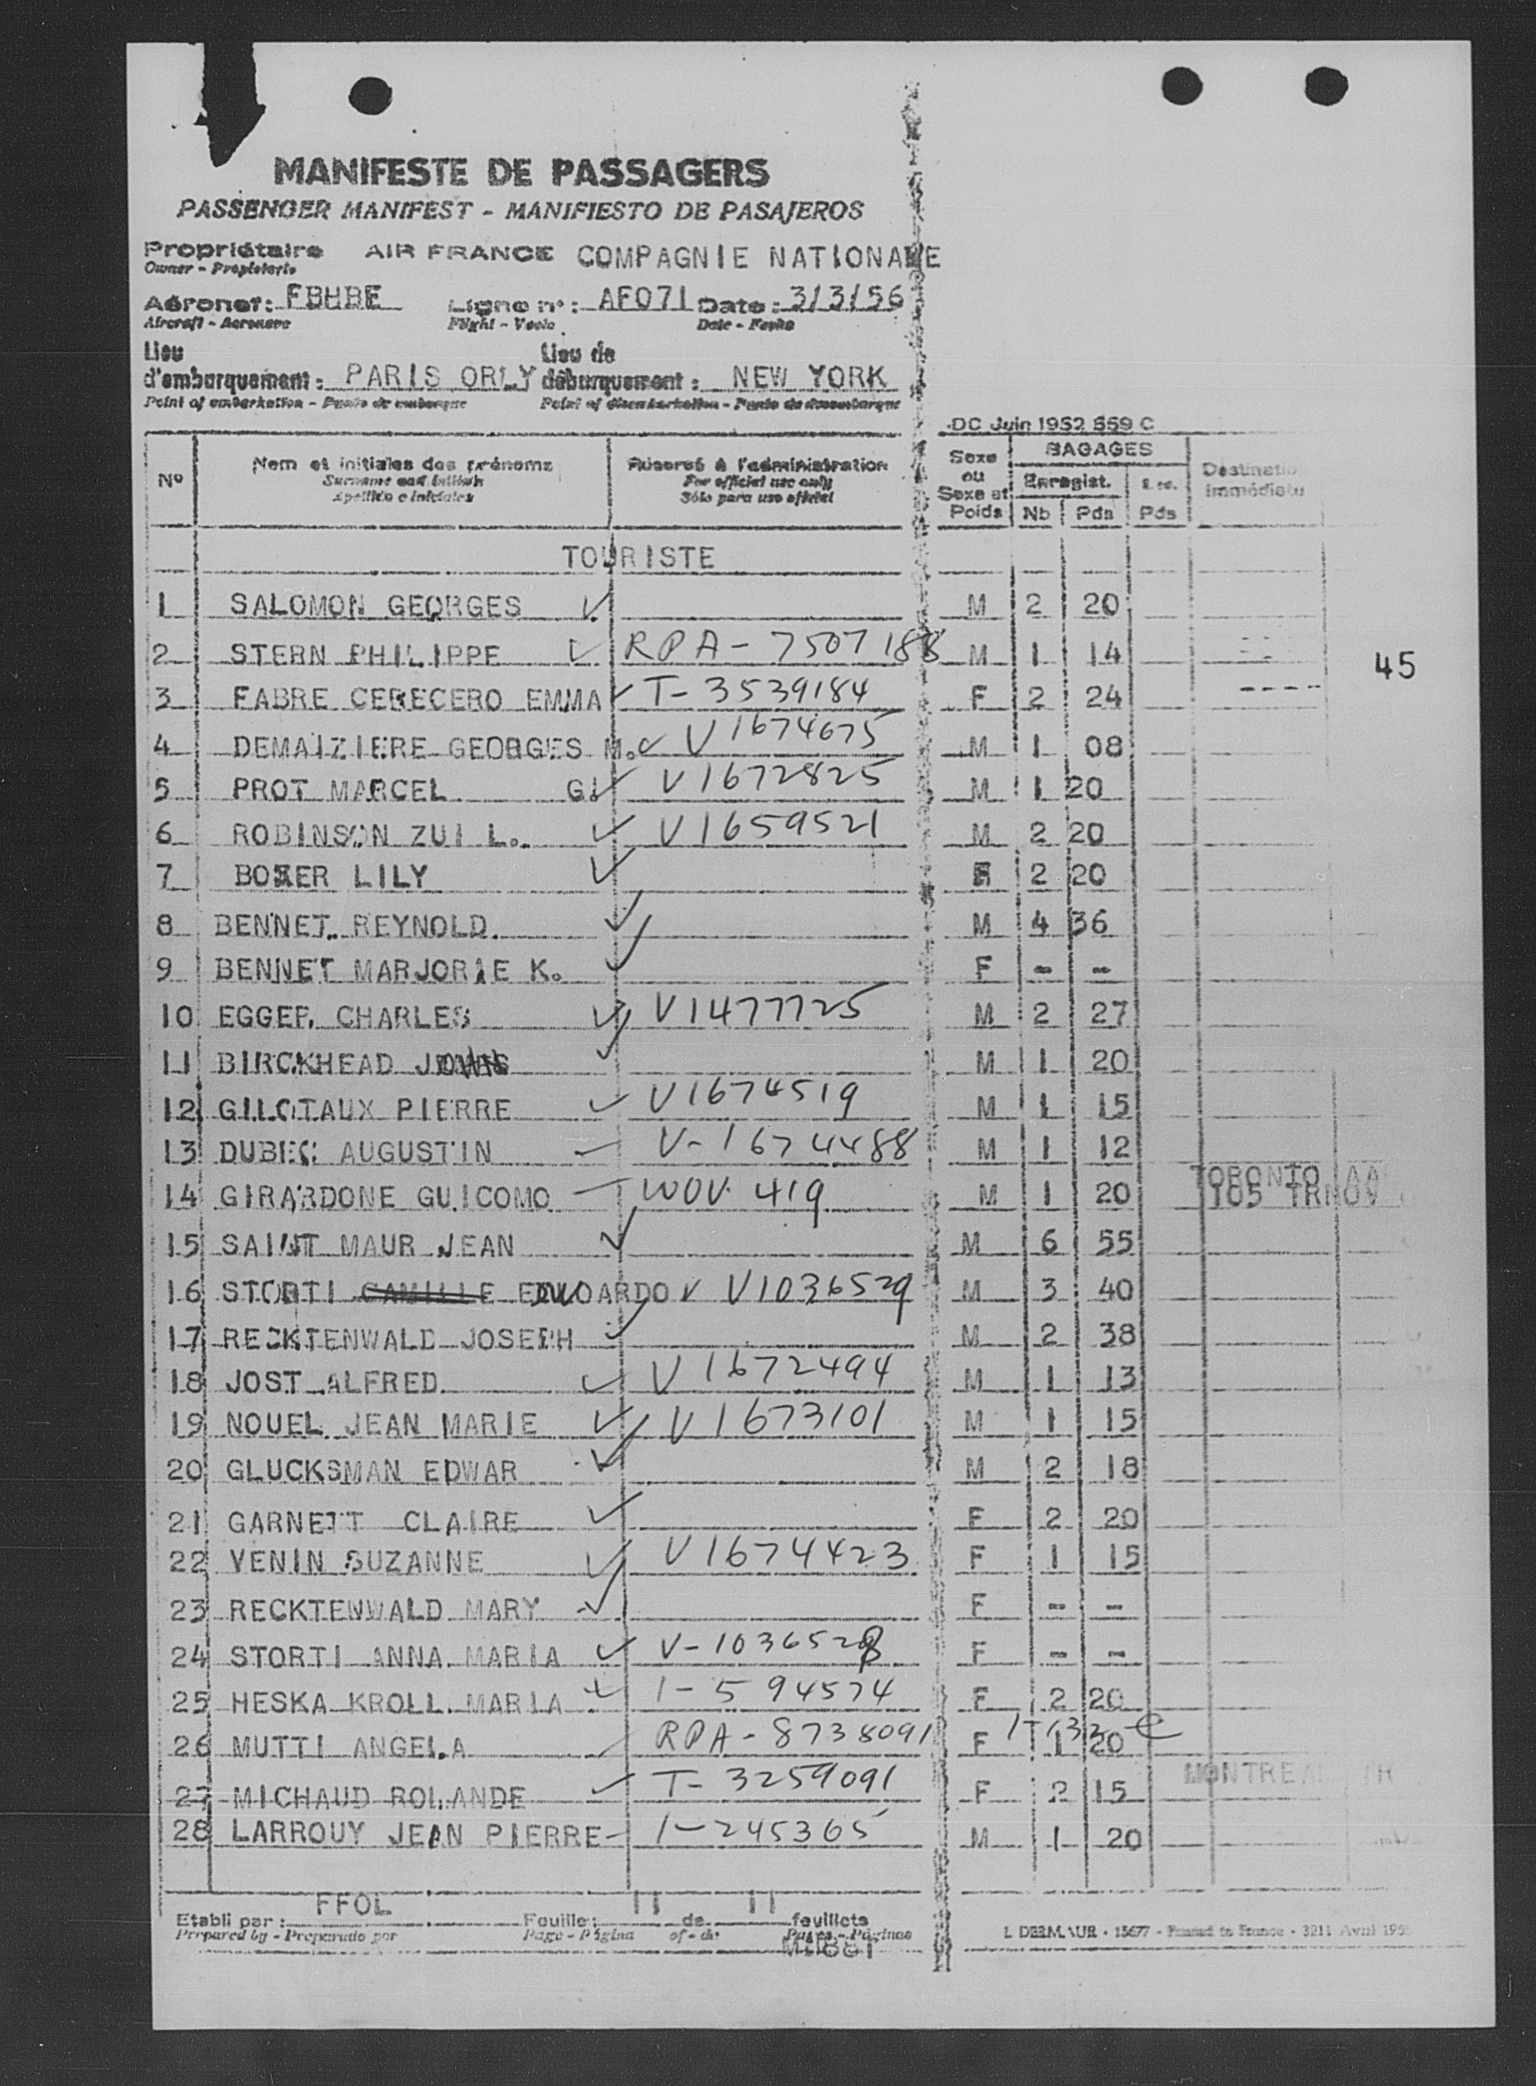 MANIFESTE DE PASSAGERS
PASSENGER MANIFEST - MANIFIESTO DE PASAJEROS
Propriétaire AIR FRANCE COMPAGNIE NATIONALE
Owner - Propietario
Aéronef: FBHBE Ligne n°: AF071 Date: 3/3/56
Aircraft - Aeronave Flight - Vuelo Date - Fecha
Lieu d'embarquement: PARIS ORLY Lieu de débarquement: NEW YORK
Point of embarkation - Punto de embarque Point of disembarkation - Punto de desembarque
DC Juin 1952 559 C
N° Nom et initiales des prénoms Réservé à l'administration Sexe ou Sexe et Poids BAGAGES Destination immédiate
Surname and initials For official use only Enregist.
Apellido e iniciales Sólo para uso oficial Nb Pds Pds
TOURISTE
1 SALOMON GEORGES M 2 20
2 STERN PHILIPPE RPA-7507188 M 1 14
45
3 FABRE CERECERO EMMA T-3539184 F 2 24
4 DEMAIZIERE GEORGES M. V1674675 M 1 08
5 PROT MARCEL G. V1672825 M 1 20
6 ROBINSON ZUI L. V1659521 M 2 20
7 LILY F 2 20
8 BENNET REYNOLD M 4 36
9 BENNET MARJORIE K. F - -
10 EGGER CHARLES V1477725 M 2 27
11 BIRCKHEAD M 1 20
12 GILOTAUX PIERRE V1674519 M 1 15
13 DUBEC AUGUSTIN V-1674488 M 1 12
14 GIRARDONE GUICOMO WOV. 419 M 1 20 TORONTO AA
105 TRNOV
15 SAINT MAUR JEAN M 6 55
16 STORTI CAMILLE EDUOARDO V1036529 M 3 40
17 RECKTENWALD JOSEPH M 2 38
18 JOST ALFRED V1672494 M 1 13
19 NOUEL JEAN MARIE V1673101 M 1 15
20 GLUCKSMAN EDWAR M 2 18
21 GARNETT CLAIRE F 2 20
22 VENIN SUZANNE V1674423 F 1 15
23 RECKTENWALD MARY F - -
24 STORTI ANNA MARIA V-1036528 F - -
25 HESKA KROLL MARIA 1-594574 F 2 20
26 MUTTI ANGELA RPA-8738091 F 1 20
27 MICHAUD ROLANDE T-3259091 F 2 15 MONTREAL
28 LARROUY JEAN PIERRE 1-245365 M 1 20
Etabli par: FFOL Feuille: 11 de 11 feuillets
Prepared by - Preparado por Page - Página of - de Pages - Páginas
L DERMAUR - 15677 - Printed in France - 3211 Avril 195